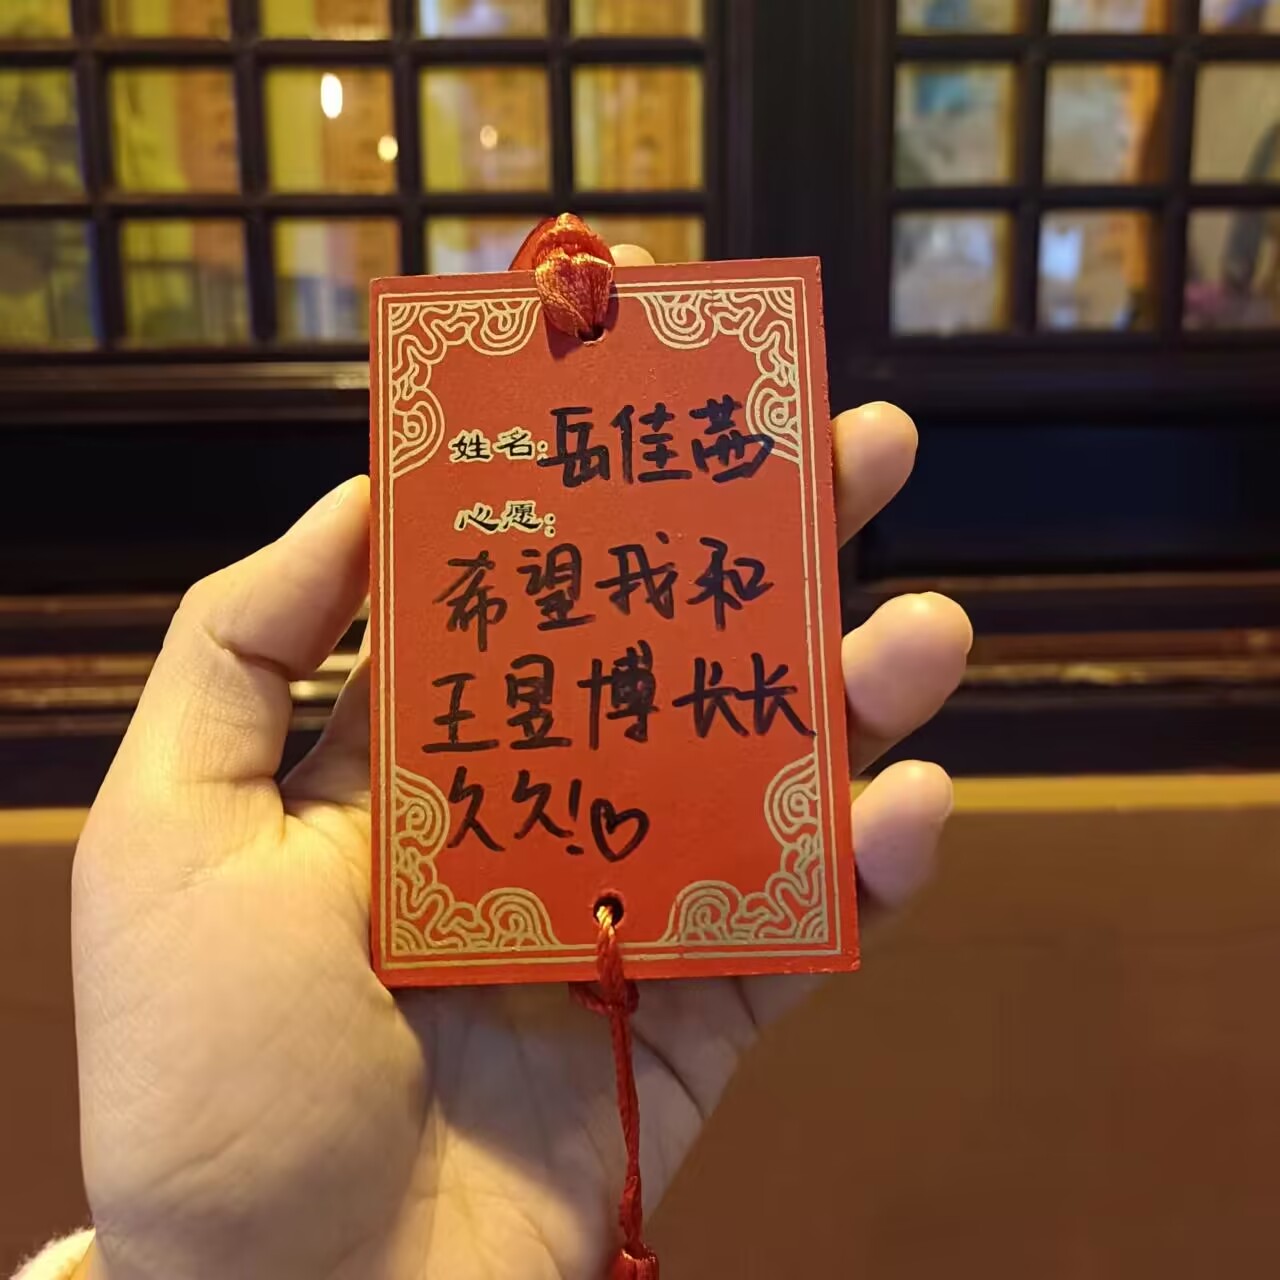 姓名:岳佳茜
心愿:
希望我和
王昱博长长
久久!♡